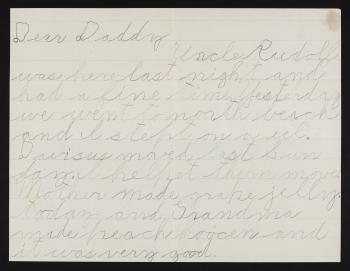 Dear Daddy
Uncle Rudolf
was here last night and
had a fine time. Yesterday
we went to north beach
and I stept on a
moved last Sun
day. I helpet them move
Mother made grape jelly
today and Grandma
made peach and
it was very good.